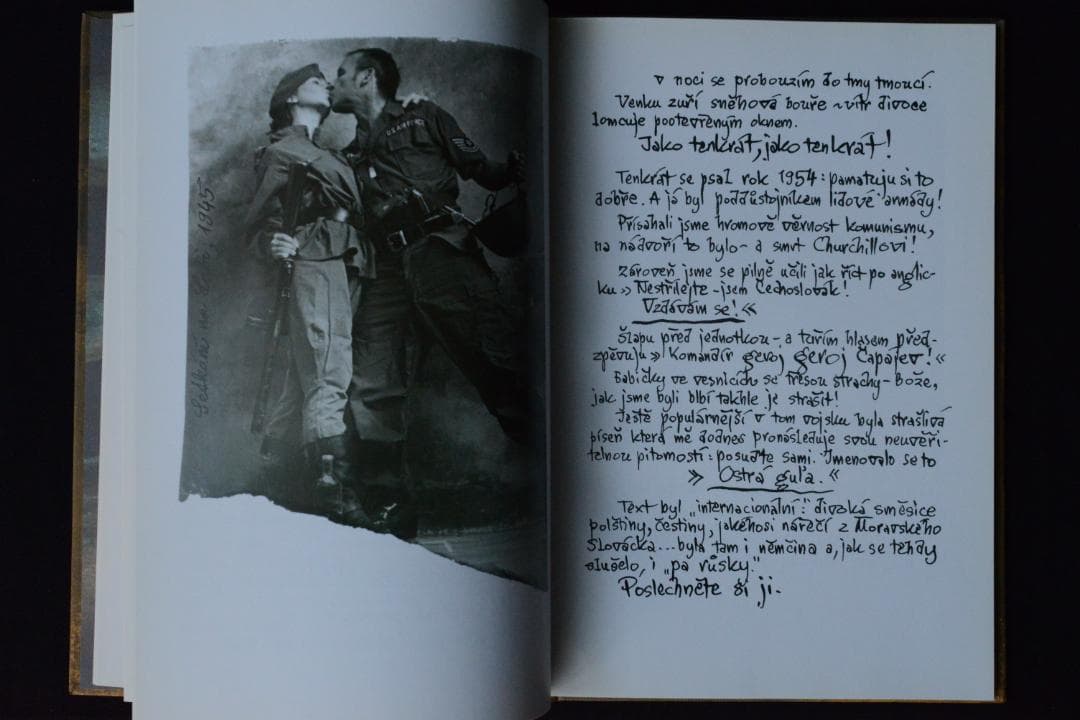 Setkání na 1945
U.S. AIR FORCE
v noci se probouzím do tmy tmoucí.
Venku zuří sněhová bouře ~ vítr divoce
lomcuje pootevřeným oknem.
Jako tenkrát, jako tenkrát!
Tenkrát se psal rok 1954: pamatuju si to
dobře. A já byl poddůstojníkem lidové armády!
Přísahali jsme hromově věrnost komunismu,
na nádvoří to bylo - a smrt Churchillovi!
Zároveň jsme se pilně učili jak říct po anglic-
ku » Nestřílejte - jsem Čechoslovák!
Vzdávám se! «
Šlapu před jednotkou -, a tuřím hlasem před-
zpěvuju » Komandir geroj geroj Čapajev! «
Babičky ve vesnicích se třesou strachy - Bože,
jak jsme byli blbí takhle je strašit!
Ještě populárnější v tom vojsku byla strašlivá
píseň která mě dodnes pronásleduje svou neuvěři-
telnou pitomostí: posuďte sami. Jmenovalo se to
» Ostrá guľa. «
Text byl „internacionální": divoká směsice
polštiny, češtiny, jakéhosi nářečí z Moravského
Slovácka... byla tam i němčina a, jak se tehdy
slušelo, i „pa růsky."
Poslechněte si ji.